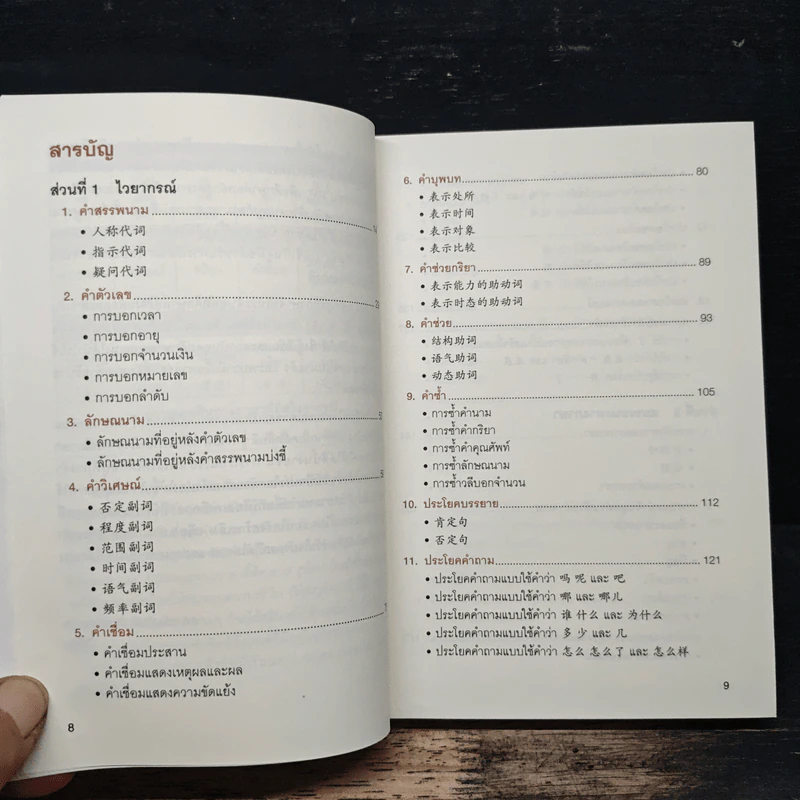 สารบัญ
ส่วนที่ 1 ไวยากรณ์
1. คำสรรพนาม
• 人称代词
• 指示代词
• 疑问代词
2. คำตัวเลข
• การบอกเวลา
• การบอกอายุ
• การบอกจำนวนเงิน
• การบอกหมายเลข
• การบอกลำดับ
3. ลักษณนาม
• ลักษณนามที่อยู่หลังคำตัวเลข
• ลักษณนามที่อยู่หลังคำสรรพนามบ่งชี้
4. คำวิเศษณ์
• 否定副词
• 程度副词
• 范围副词
• 时间副词
• 语气副词
• 频率副词
5. คำเชื่อม
• คำเชื่อมประสาน
• คำเชื่อมแสดงเหตุผลและผล
• คำเชื่อมแสดงความขัดแย้ง
8
6. คำบุพบท 80
• 表示处所
• 表示时间
• 表示对象
• 表示比较
7. คำช่วยกริยา 89
• 表示能力的助动词
• 表示时态的助动词
8. คำช่วย 93
• 结构助词
• 语气助词
• 动态助词
9. คำซ้ำ 105
• การซ้ำคำนาม
• การซ้ำคำกริยา
• การซ้ำคำคุณศัพท์
• การซ้ำลักษณนาม
• การซ้ำวลีบอกจำนวน
10. ประโยคบรรยาย 112
• 肯定句
• 否定句
11. ประโยคคำถาม 121
• ประโยคคำถามแบบใช้คำว่า 吗 呢 และ 吧
• ประโยคคำถามแบบใช้คำว่า 哪 และ 哪儿
• ประโยคคำถามแบบใช้คำว่า 谁 什么 และ 为什么
• ประโยคคำถามแบบใช้คำว่า 多少 และ 几
• ประโยคคำถามแบบใช้คำว่า 怎么 怎么了 และ 怎么样
9